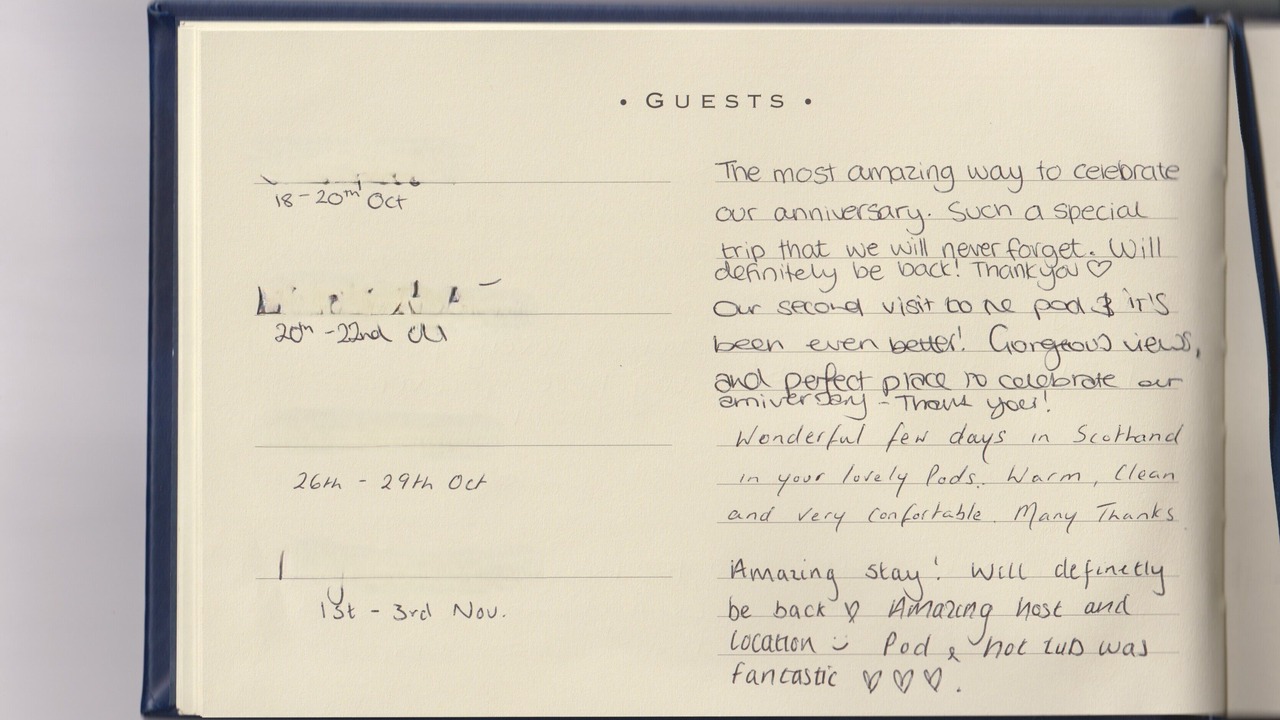 • GUESTS •
18-20th Oct
The most amazing way to celebrate
our anniversary. Such a special
trip that we will never forget. Will
definitely be back! Thank you ♡
20th -22nd
Our second visit to the pod & it's
been even better! Gorgeous views,
and perfect place to celebrate our
anniversary - Thank you!
26th - 29th Oct
Wonderful few days in Scotland
in your lovely Pods. Warm, Clean
and very confortable. Many Thanks
1st - 3rd Nov.
Amazing stay! Will definetly
be back ♡ Amazing host and
location :) Pod & hot tub was
fantastic ♡♡♡.